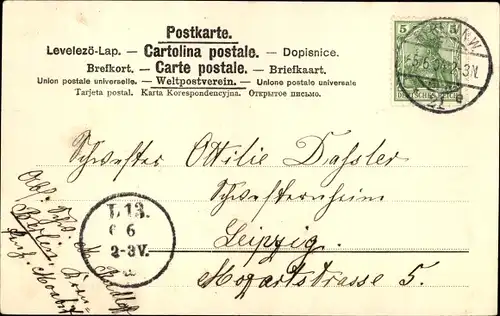 Postkarte.
Levelező-Lap. — Cartolina postale. — Dopisnice.
Brefkort. — Carte postale. — Briefkaart.
Union postale universelle. — Weltpostverein. — Unione postale universale
Tarjeta postal. Karta Korespondencyjna. Открытое письмо.
5 5
DEUTSCHES REICH
N.W.
2-3N.
21
Schwester Ottilie Dassler
Schwesternheim
Leipzig.
Mozartstrasse 5.
L 13.
6 6
2-3V.
Abs.
Berlin.